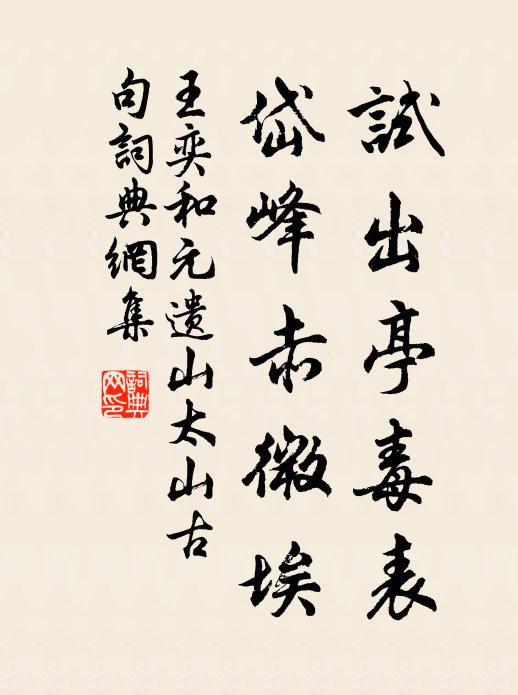 試出亭毒表
岱峰赤微埃
王奕和元遺山太山古
句詞典網集
詞典
网印